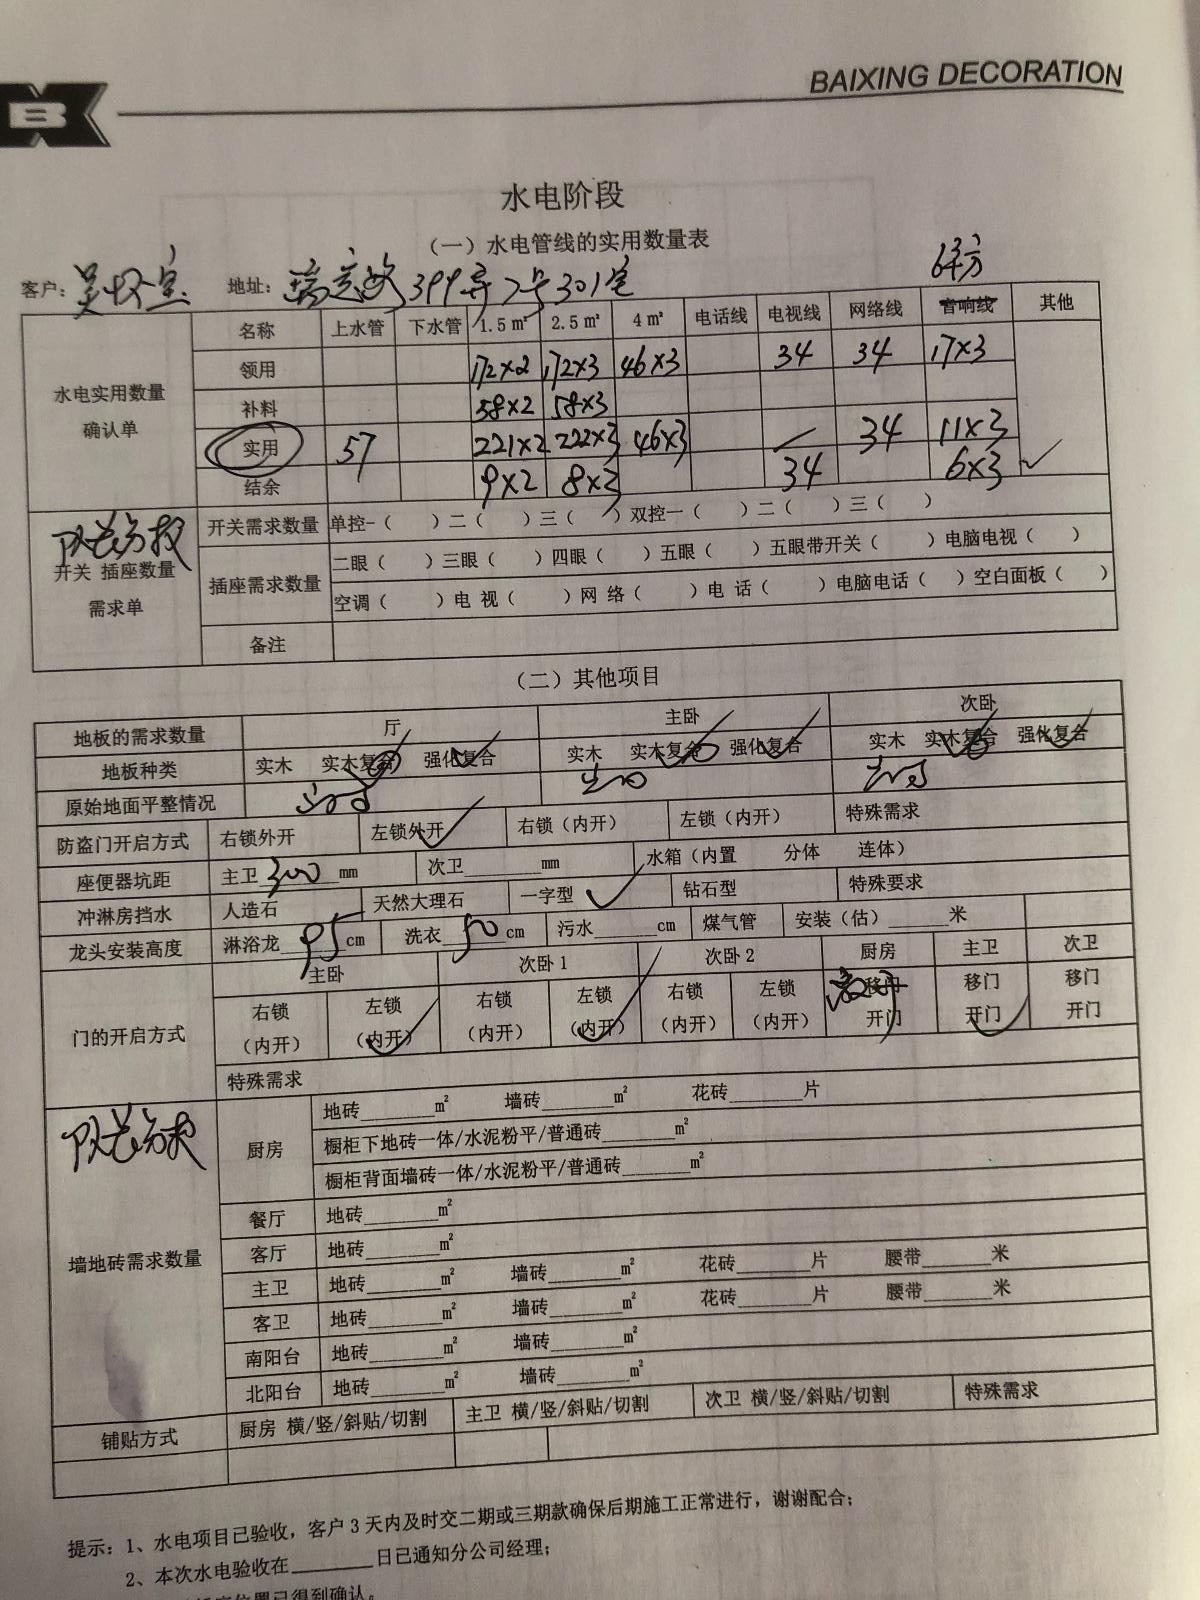 B
BAIXING DECORATION
水电阶段
（一）水电管线的实用数量表
6平方
客户： 地址： 399弄7号301室
名称 上水管 下水管 1.5㎡ 2.5㎡ 4㎡ 电话线 电视线 网络线 音响线 其他
水电实用数量
确认单
领用 172×2 172×3 46×3 34 34 17×3
补料 58×2 58×3
实用 57 221×2 222×3 46×3 34 11×3
结余 9×2 8×3 34 6×3
开关 插座数量
需求单
开关需求数量 单控-（ ）二（ ）三（ ）双控一（ ）二（ ）三（ ）
插座需求数量
二眼（ ）三眼（ ）四眼（ ）五眼（ ）五眼带开关（ ）电脑电视（ ）
空调（ ）电 视（ ）网 络（ ）电 话（ ）电脑电话（ ）空白面板（ ）
备注
（二）其他项目
地板的需求数量 厅 主卧 次卧
地板种类 实木 实木复合 强化复合 实木 实木复合 强化复合 实木 实木复合 强化复合
原始地面平整情况
防盗门开启方式 右锁外开 左锁外开 右锁（内开） 左锁（内开） 特殊需求
座便器坑距 主卫300mm 次卫______mm 水箱（内置 分体 连体）
冲淋房挡水 人造石 天然大理石 一字型 钻石型 特殊要求
龙头安装高度 淋浴龙95cm 洗衣50cm 污水______cm 煤气管 安装（估）______米
门的开启方式
主卧 次卧1 次卧2 厨房 主卫 次卫
右锁 左锁 右锁 左锁 右锁 左锁 移门 移门 移门
（内开） （内开） （内开） （内开） （内开） （内开） 开门 开门 开门
特殊需求
墙地砖需求数量
厨房
地砖______㎡ 墙砖______㎡ 花砖______片
橱柜下地砖一体/水泥粉平/普通砖______㎡
橱柜背面墙砖一体/水泥粉平/普通砖______㎡
餐厅 地砖______㎡
客厅 地砖______㎡
主卫 地砖______㎡ 墙砖______㎡ 花砖______片 腰带______米
客卫 地砖______㎡ 墙砖______㎡ 花砖______片 腰带______米
南阳台 地砖______㎡ 墙砖______㎡
北阳台 地砖______㎡ 墙砖______㎡
铺贴方式 厨房 横/竖/斜贴/切割 主卫 横/竖/斜贴/切割 次卫 横/竖/斜贴/切割 特殊需求
提示：1、水电项目已验收，客户3天内及时交二期或三期款确保后期施工正常进行，谢谢配合；
2、本次水电验收在______日已通知分公司经理；
位置已得到确认。